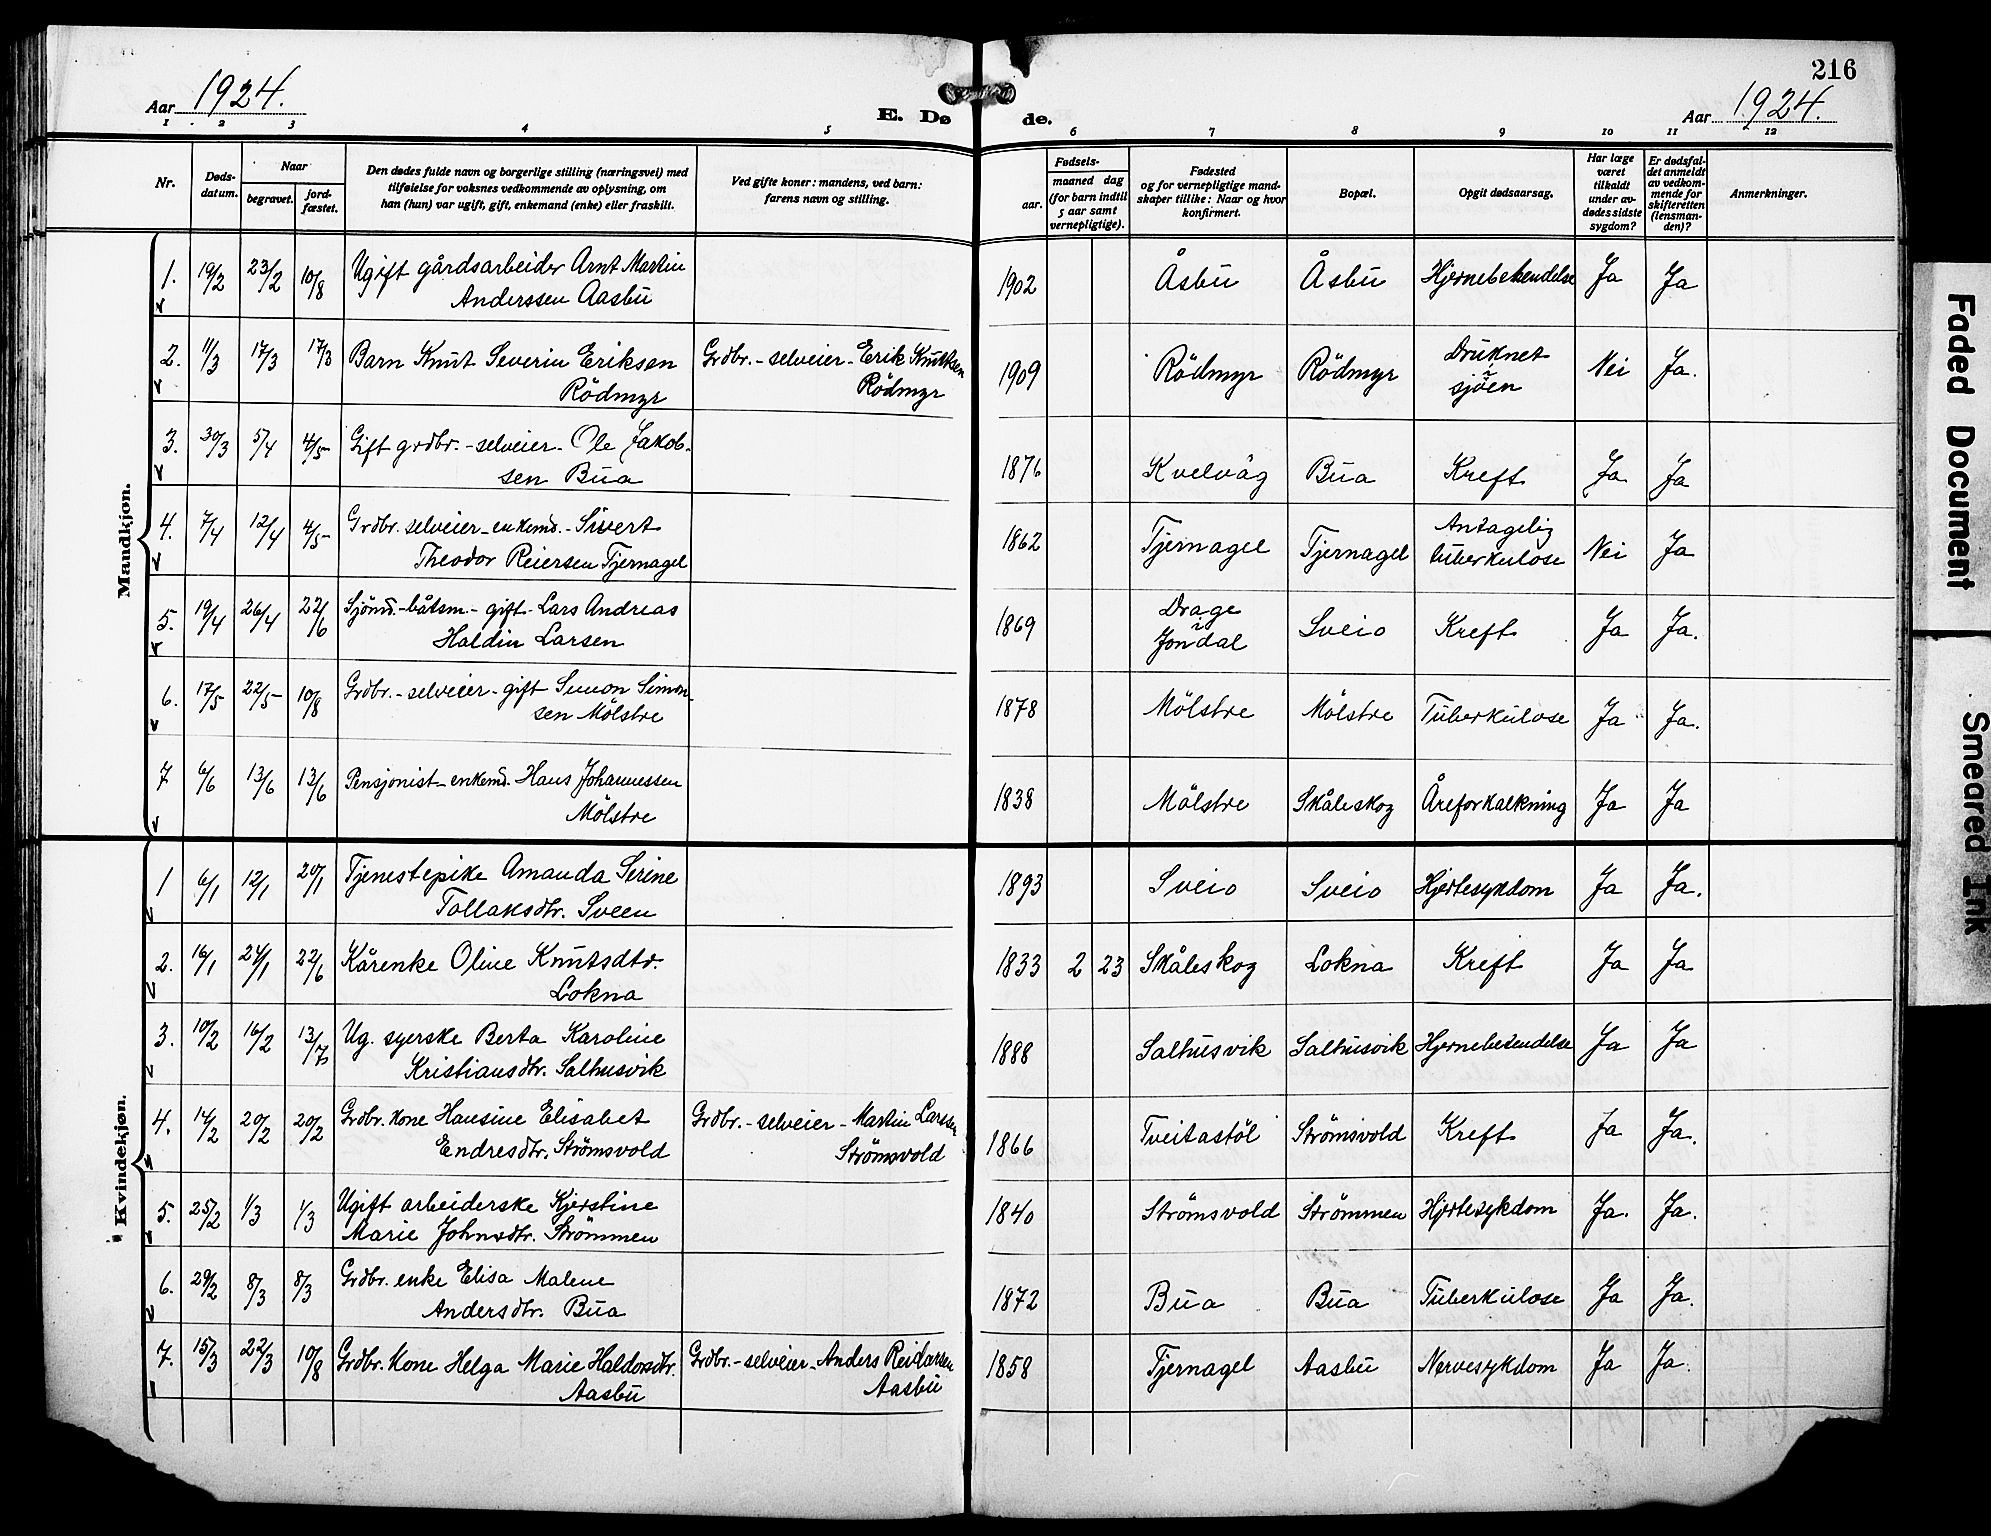 216
Aar 1924.
E. Døde.
Aar 1924.
1 2 3 4 5 6 7 8 9 10 11 12
Nr.
Døds-
datum.
Naar
begravet.
jord-
fæstet.
Den dødes fulde navn og borgerlige stilling (næringsvei) med
tilføielse for voksnes vedkommende av oplysning, om
han (hun) var ugift, gift, enkemand (enke) eller fraskilt.
Ved gifte koner: mandens, ved barn:
farens navn og stilling.
Fødsels-
aar.
maaned dag
(for barn indtil
5 aar samt
vernepligtige).
Fødested
og for vernepligtige mand-
skaper tillike: Naar og hvor
konfirmert.
Bopæl.
Opgit dødsaarsag.
Har læge
været
tilkaldt
under av-
dødes sidste
sygdom?
Er dødsfal-
det anmeldt
av vedkom-
mende for
skifteretten
(lensman-
den)?
Anmerkninger.
Mandkjøn.
1. 19/2 23/2 10/8 Ugift gårdsarbeider Arnt Martin
Anderssen Aasbu
1902 Åsbu Åsbu Hjernebetendelse Ja Ja
2. 11/3 17/3 17/3 Barn Knut Severin Eriksen
Rödmyr
Grdbr.-selveier-Erik Knutsen
Rödmyr
1909 Rödmyr Rödmyr Druknet
i
sjöen
Nei Ja.
3. 30/3 5/4 4/5 Gift grdbr.-selveier-Ole Jakob-
sen Bua
1876 Kvelvåg Bua Kreft Ja Ja
4. 7/4 12/4 4/5 Grdbr. selveier-enkemd.-Sivert
Theodor Reiersen Tjernagel
1862 Tjernagel Tjernagel Antagelig
tuberkulose
Nei Ja
5. 19/4 26/4 22/6 Sjömd.-båtsm.-gift-Lars Andreas
Haldin Larsen
1869 Drage
i
Jondal
Sveio Kreft Ja Ja.
6. 17/5 22/5 10/8 Grdbr.-selveier-gift Simon Simon-
sen Mölstre
1878 Mölstre Mölstre Tuberkulose Ja Ja.
7 6/6 13/6 13/6 Pensjonist-enkemd. Hans Johannessen
Mölstre
1838 Mölstre Skåleskog Åreforkalkning Ja Ja
Kvindekjøn.
1 6/1 12/1 20/1 Tjenestepike Amanda Serine
Tollaksdtr. Sveen
1893 Sveio Sveio Hjertesykdom Ja Ja.
2. 16/1 24/1 22/6 Kårenke Oline Knutsdtr.
Lokna
1833 2 23 Skåleskog Lokna Kreft Ja Ja
3. 10/2 16/2 13/7 Ug. syerske Berta Karoline
Kristiansdtr. Salhusvik
1888 Salhusvik Salhusvik Hjernebetendelse Ja Ja
4. 14/2 20/2 20/2 Grdbr. kone Hansine Elisabet
Endresdtr. Strömsvold
Grdbr.-selveier-Martin Larsen
Strömsvold
1866 Tveitastöl Strömsvold Kreft Ja Ja.
5. 25/2 1/3 1/3 Ugift arbeiderske Kjerstine
Marie Johnsdtr. Strömmen
1840 Strömsvold Strömmen Hjertesykdom Ja. Ja.
6. 29/2 8/3 8/3 Grdbr. enke Elisa Malene
Andersdtr. Bua
1872 Bua Bua Tuberkulose Ja Ja.
7. 15/3 22/3 10/8 Grdbr. kone Helga Marie Haldorsdtr.
Aasbu
Grdbr.-selveier-Anders Reidarsen
Aasbu
1858 Tjernagel Aasbu Nervesykdom Ja Ja.
Faded Document
Smeared Ink